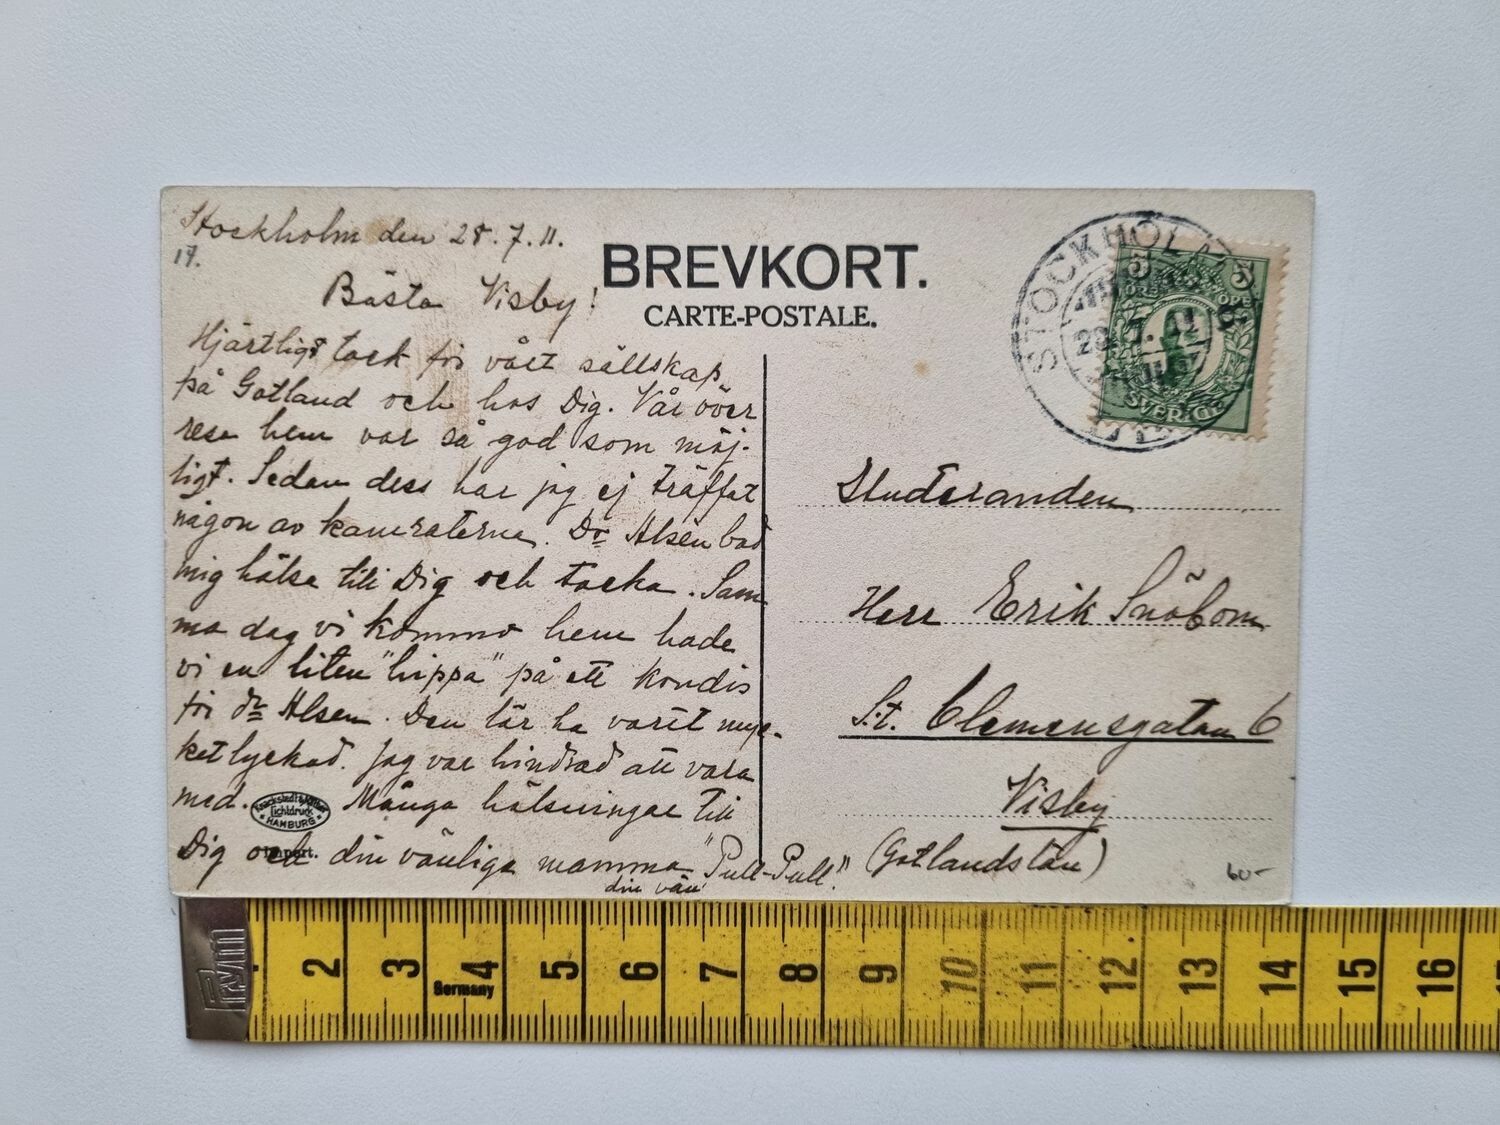 Stockholm den 28.7.11.
17.
BREVKORT.
CARTE-POSTALE.
Bästa Visby!
Hjärtligt tack för vårt sällskap
på Gotland och hos Dig. Vår över
resa hem var så god som möj-
ligt. Sedan dess har jag ej träffat
någon av kamraterna. Dr Alsén bad
mig hälsa till Dig och tacka. Sam-
ma dag vi kommo hem hade
vi en liten "hippa" på ett kondis
för dr Alsen. Den lär ha varit myc-
ket lyckad. Jag var hindrad att vara
med. Många hälsningar till
Dig och din vänliga mamma "Pull-Pull."
din vän
Knackstedt & Näther
Lichtdruck
HAMBURG
Import.
STOCKHOLM
5 5
ÖRE ÖRE
SVERIGE
Studeranden
Herr Erik Snöbom
S:t. Clemensgatan 6
Visby
(Gotlandslän)
60-
Prym
2 3 4 5 6 7 8 9 10 11 12 13 14 15 16
Germany